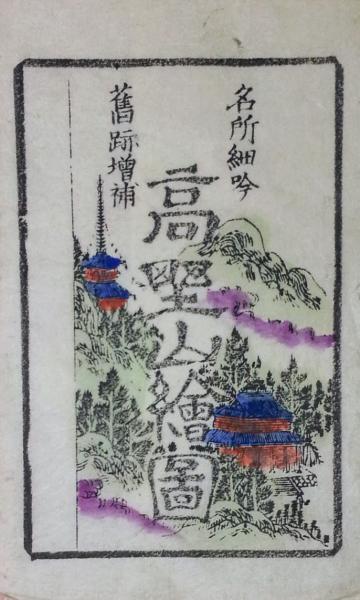 名所細吟
高野山繪圖
舊跡増補